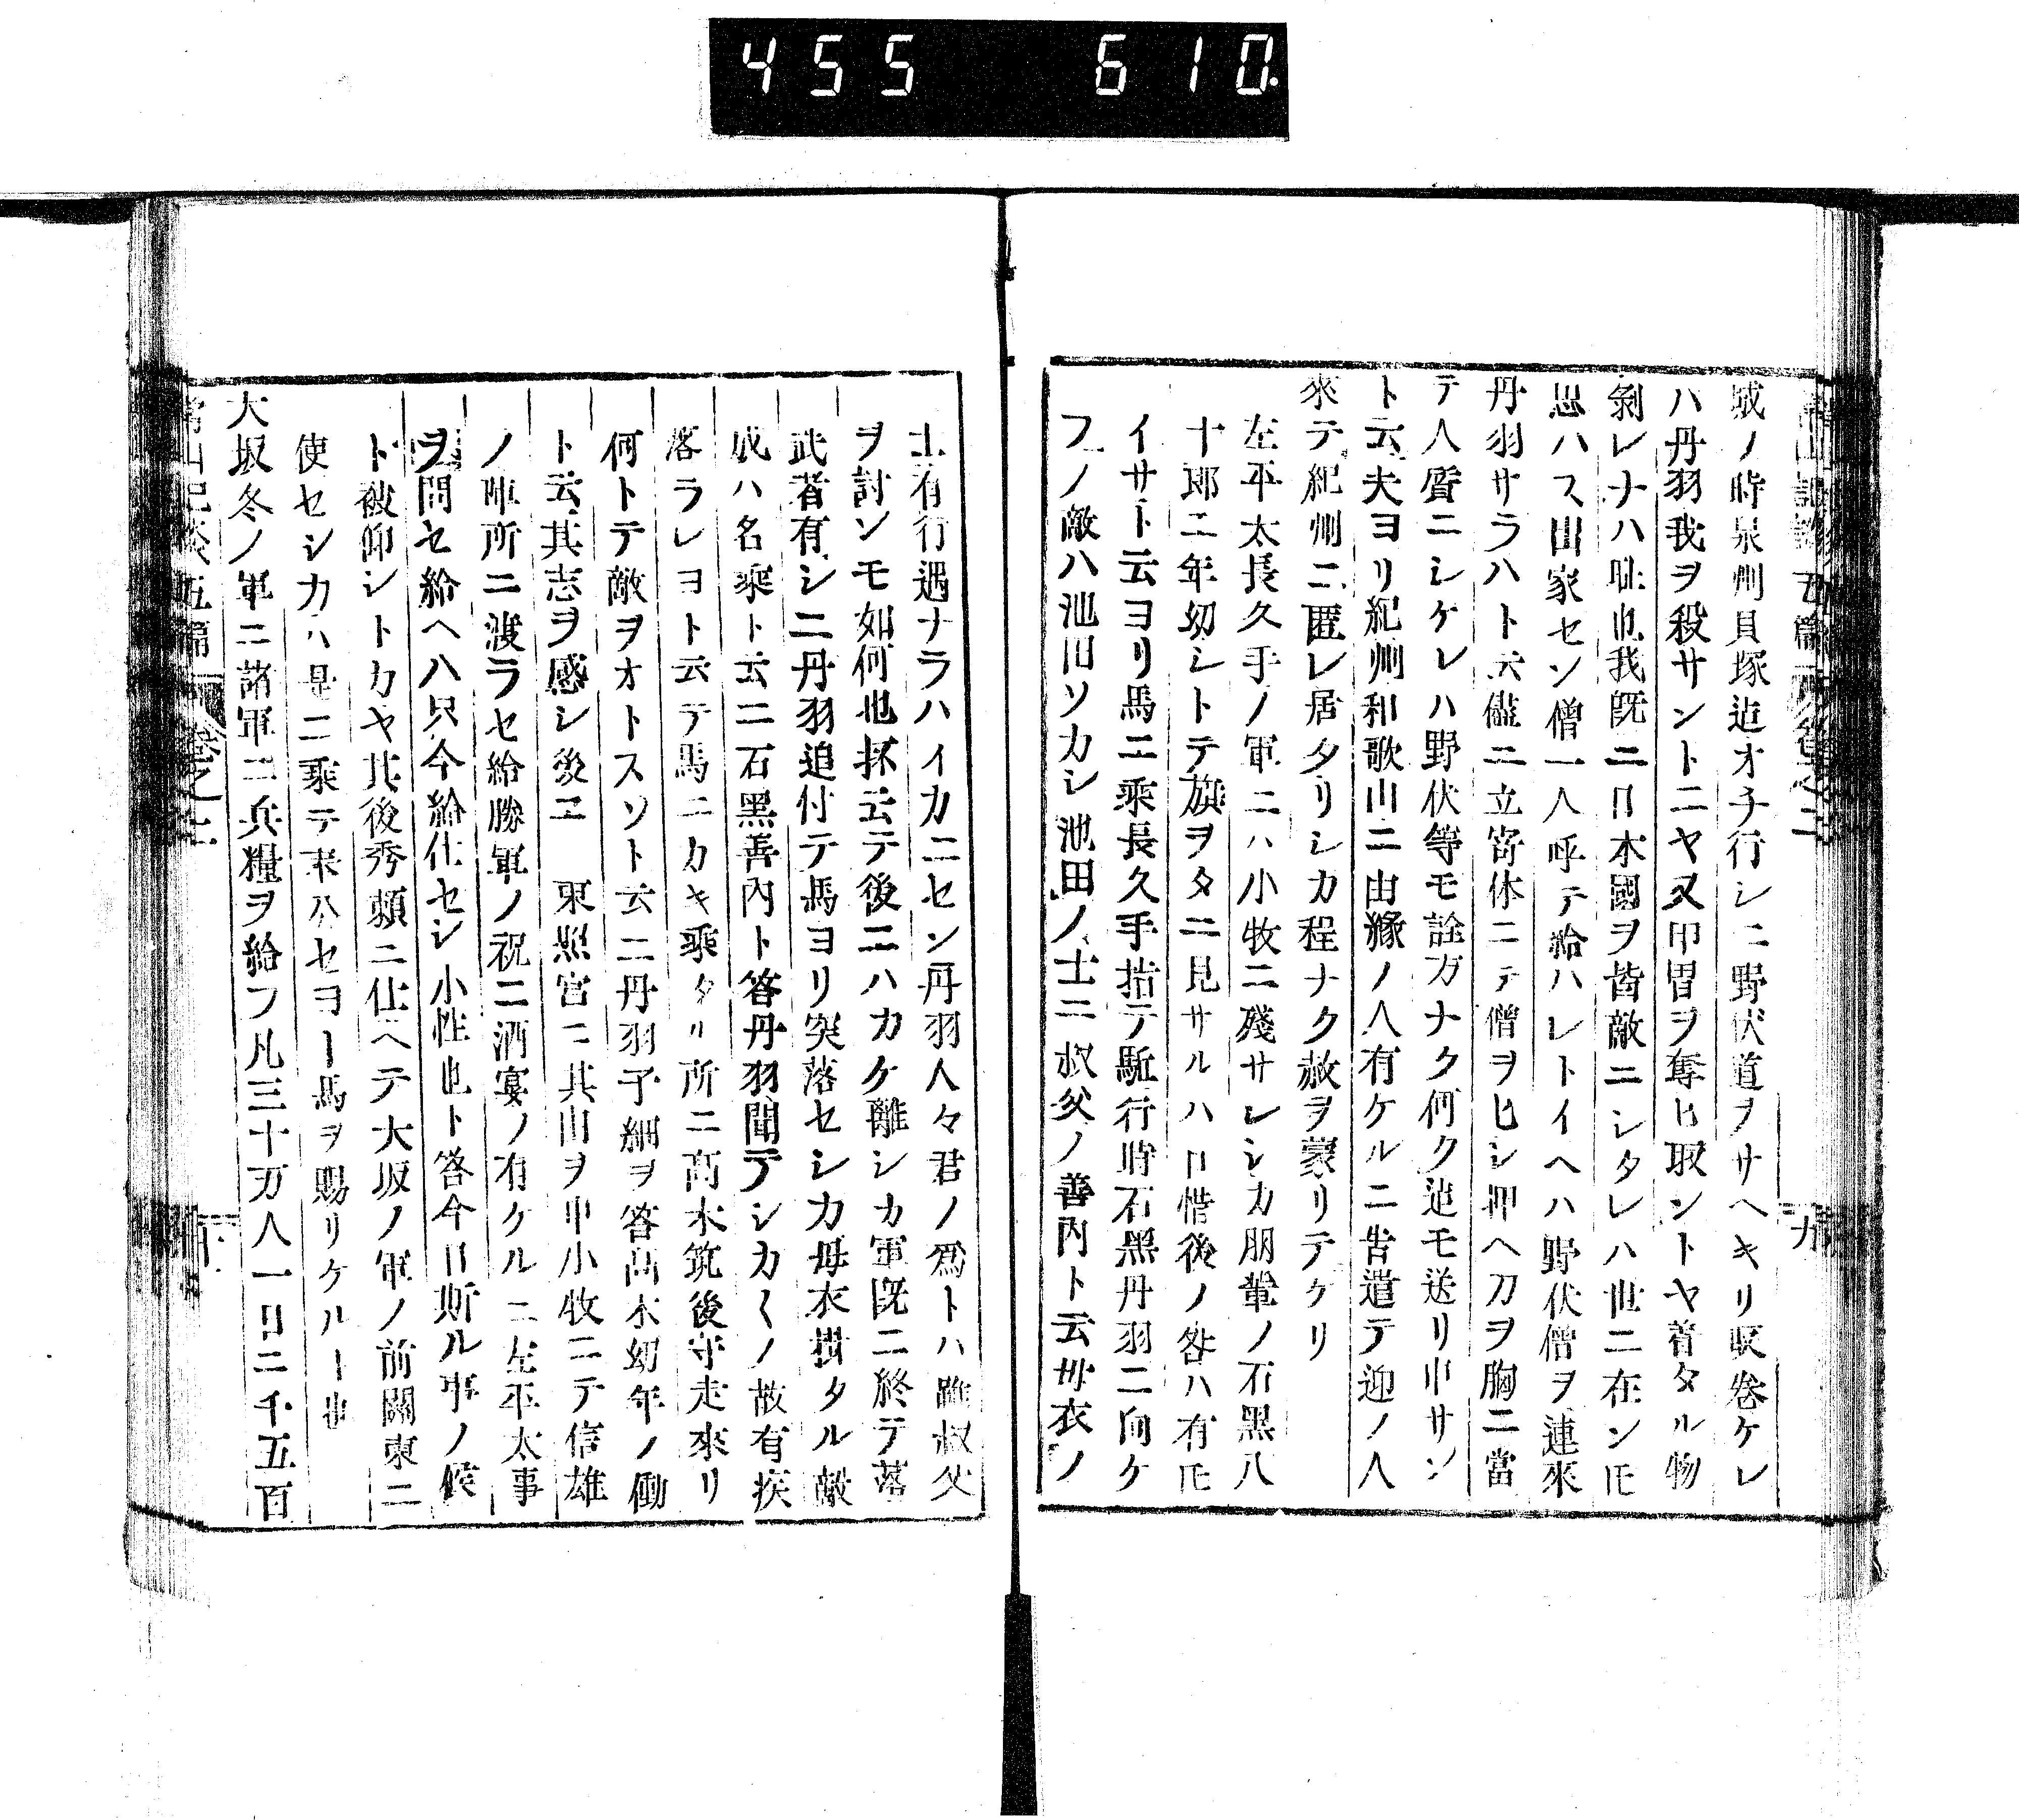 455 610.
城ノ時泉州貝塚迠オチ行シニ野伏道ヲサヘキリ取巻ケレ
ハ丹羽我ヲ殺サントニヤ又甲冑ヲ奪ヒ取ントヤ着タル物
剝レナハ耻也我既ニ日本國ヲ皆敵ニシタレハ世ニ在ン𪜈
思ハス出家セン僧一人呼テ給ハレトイヘハ野伏僧ヲ連來
丹羽サラハト云儘ニ立寄休ニテ僧ヲヒシ押ヘ刀ヲ胸ニ當
テ人質ニシケレハ野伏等モ詮方ナク何ク迠モ送リ申サン
ト云夫ヨリ紀州和歌山ニ由緣ノ人有ケルニ告遣テ迎ノ人
來テ紀州ニ匿レ居タリシカ程ナク赦ヲ蒙リテケリ
左平太長久手ノ軍ニハ小牧ニ殘サレシカ朋輩ノ石黑八
十郎ニ年幼シトテ旗ヲタニ見サルハ口惜後ノ咎ハ有𪜈
イサト云ヨリ馬ニ乘長久手指テ駈行時石黑丹羽ニ向ケ
フノ敵ハ池田ソカシ池田ノ士ニ叔父ノ善內ト云母衣ノ
士有行遇ナラハイカニセン丹羽人々君ノ爲トハ雖叔父
ヲ討ンモ如何也抔云テ後ニハカケ離シカ軍既ニ終テ落
武者有シニ丹羽追付テ馬ヨリ突落セシカ母衣掛タル敵
成ハ名乘ト云ニ石黑善內ト答丹羽聞テシカ〱ノ故有疾
落ラレヨト云テ馬ニカキ乘タル所ニ高木筑後守走來リ
何トテ敵ヲオトスソト云ニ丹羽子細ヲ答高木幼年ノ働
ト云其志ヲ感シ後ヱ　東照宮ニ其由ヲ申小牧ニテ信雄
ノ陣所ニ渡ラセ給勝軍ノ祝ニ酒宴ノ有ケルニ左平太事
ヲ問セ給ヘハ只今給仕セシ小性也ト答今日斯ル事ノ候
ト被仰シトカヤ其後秀賴ニ仕ヘテ大坂ノ軍ノ前關東ニ
使セシカハ是ニ乘テ奉公セヨー馬ヲ賜リケルー也
大坂冬ノ軍ニ諸軍ニ兵糧ヲ給フ凡三十万人一日ニ千五百
常山紀談五編　卷之二